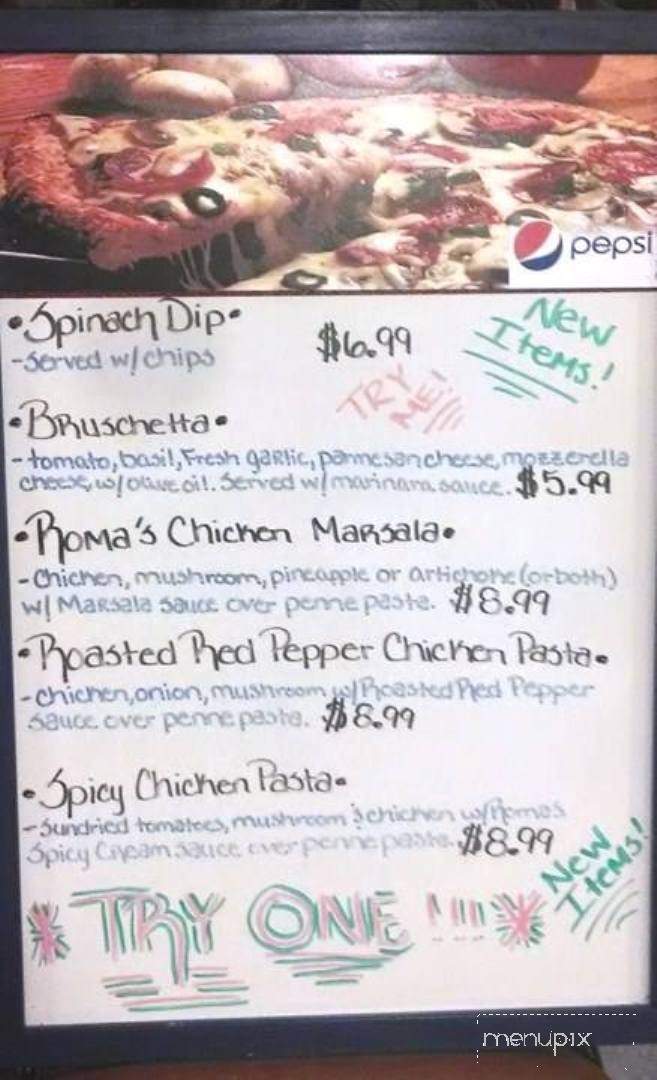 pepsi
•Spinach Dip•
-Served w/chips
$6.99
New
Items!
TRY
ME!
•Bruschetta•
-tomato, basil, Fresh garlic, parmesan cheese, mozzerella
cheese, w/olive oil. Served w/marinara sauce. $5.99
•Roma's Chicken Marsala•
-Chicken, mushroom, pineapple or artichoke (or both)
w/ Marsala sauce over penne pasta. $8.99
•Roasted Red Pepper Chicken Pasta•
-chicken, onion, mushroom w/Roasted Red Pepper
sauce over penne pasta. $8.99
•Spicy Chicken Pasta•
-Sundried tomatoes, mushroom & chicken w/Roma's
Spicy Cream Sauce over penne pasta. $8.99
New
Items!
TRY ONE !!!
menupix